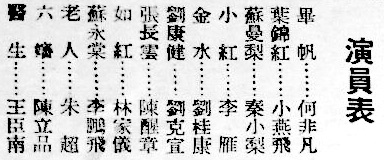 演員表
畢帆⋯⋯何非凡
葉錦紅⋯⋯小燕飛
蘇曼梨⋯⋯秦小梨
小紅⋯⋯李雁
金水⋯⋯劉桂康
劉康健⋯⋯劉克宣
張長雲⋯⋯陳醒章
如紅⋯⋯林家儀
蘇永棠⋯⋯李鵬飛
老人⋯⋯朱超
六嬸⋯⋯陳立品
醫生⋯⋯王臣南